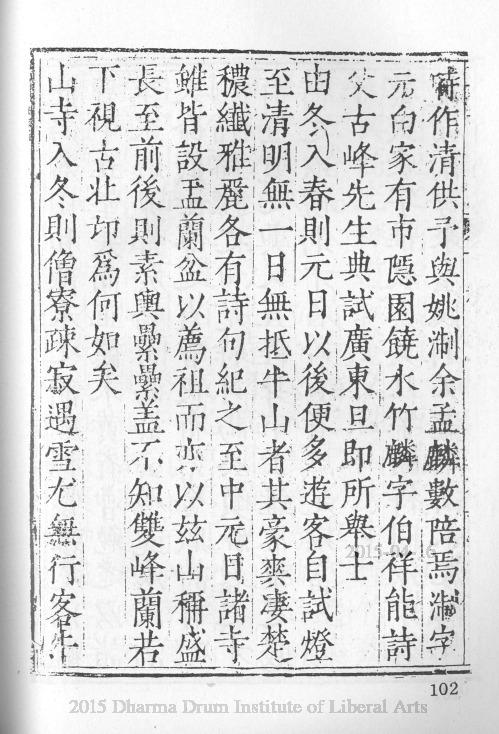 作清供予與姚淛余孟麟數陪焉淛字
元白家有市隱園饒水竹麟字伯祥能詩
父古峰先生典試廣東旦即所舉士
由冬入春則元日以後便多遊客自試燈
至清明無一日無抵牛山者其豪爽凄楚
穠纖雅麗各有詩句紀之至中元日諸寺
雖皆設盂蘭盆以薦祖而亦以茲山稱盛
長至前後則素輿纍纍盖不知雙峰蘭若
下視古壮卭爲何如矣
山寺入冬則僧寮疎寂遇雪尤無行客牛
102
2015 Dharma Drum Institute of Liberal Arts